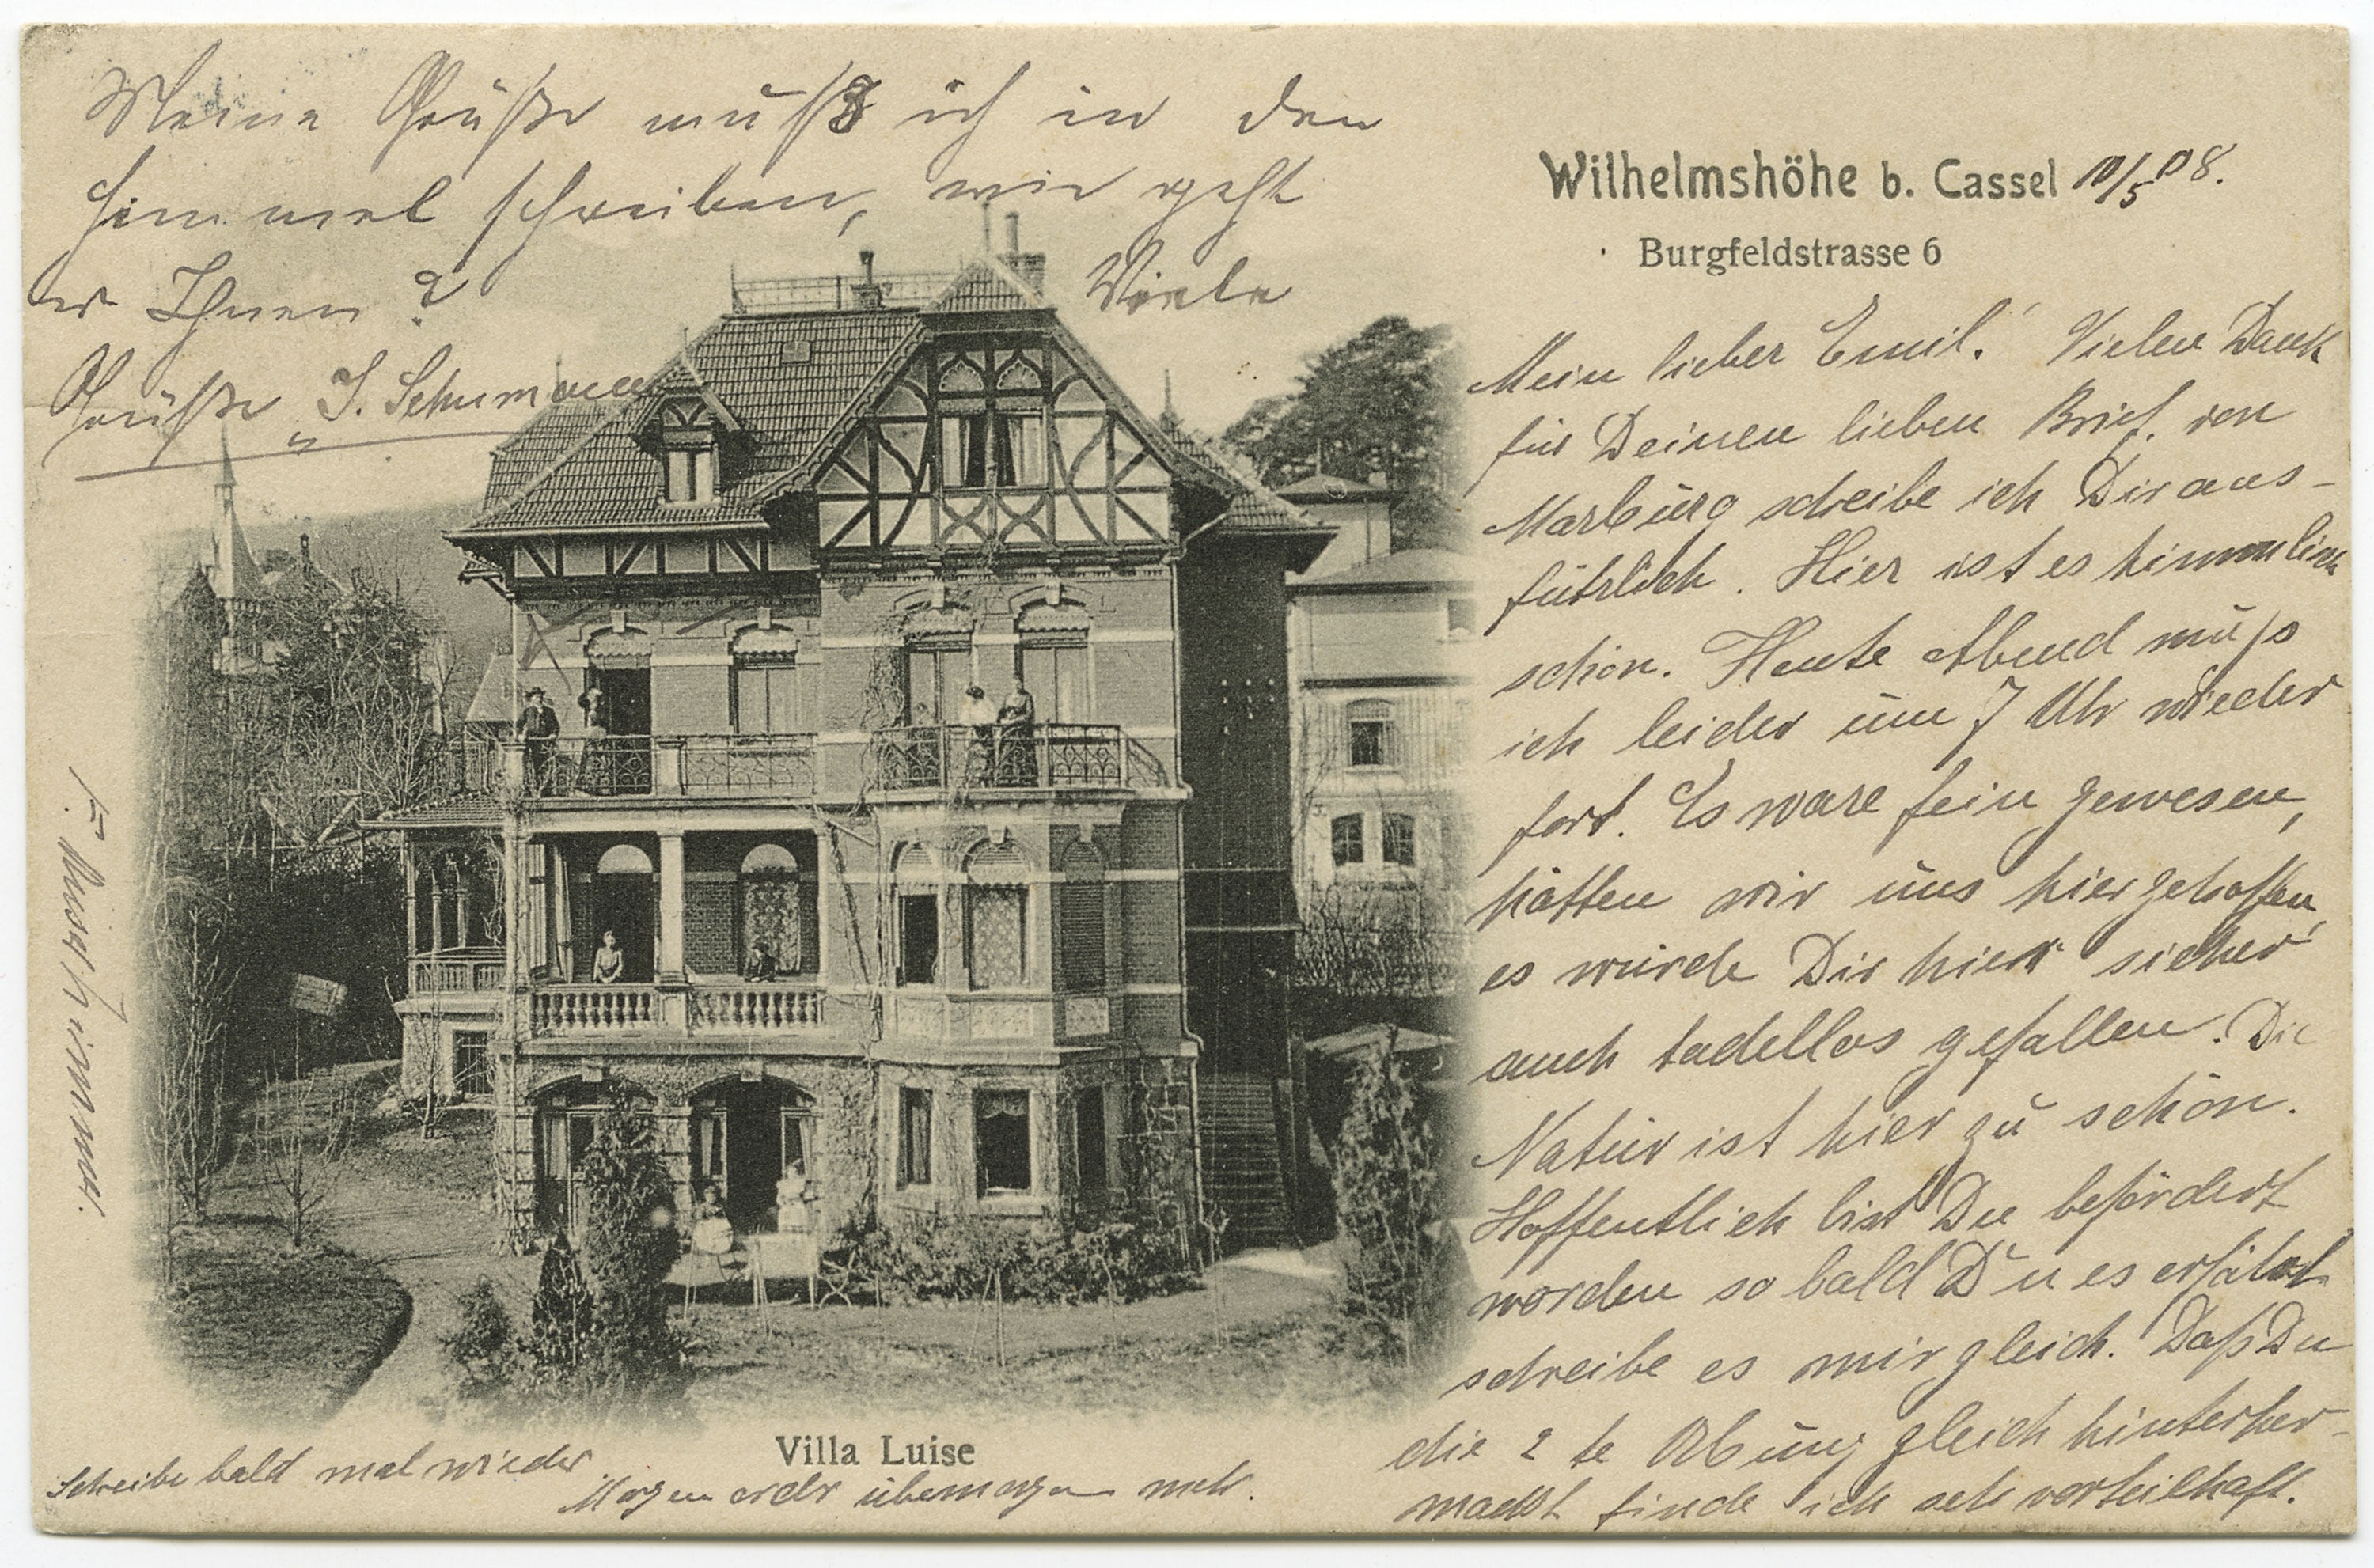 Meine Grüße muß ich in den
Himmel schreiben, wie geht
es Ihnen? Viele
Grüße J. Schumann
Wilhelmshöhe b. Cassel 10/5 08.
Burgfeldstrasse 6
Mein lieber Emil! Vielen Dank
für Deinen lieben Brief. von
Marburg schreibe ich Dir aus-
führlich. Hier ist es himmlisch
schön. Heute Abend muß
ich leider um 7 Uhr wieder
fort. Es wäre fein gewesen,
hätten wir uns hier getroffen,
es würde Dir hier sicher
auch tadellos gefallen. Die
Natur ist hier zu schön.
Hoffentlich bist Du befördert
worden so bald Du es erfährst
schreibe es mir gleich. Daß Du
die 2te Übung gleich hinterher-
machst finde ich sehr vorteilhaft.
Villa Luise
Schreibe bald mal wieder
Morgen oder übermorgen mehr.